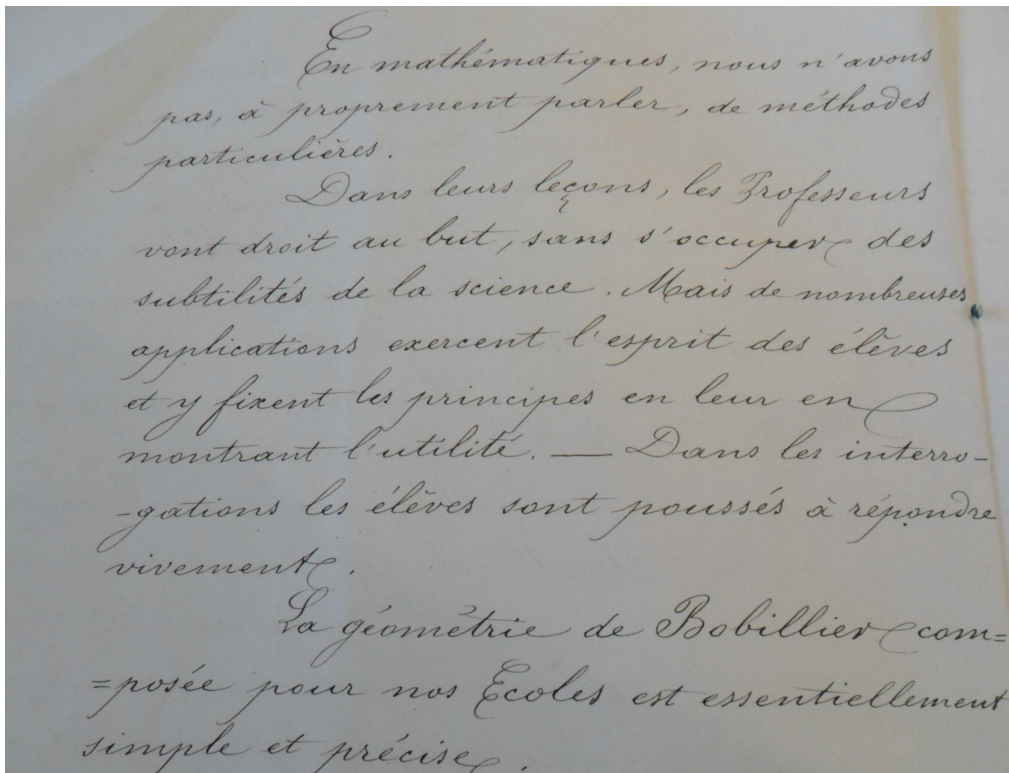 En mathématiques, nous n'avons
pas, à proprement parler, de méthodes
particulières.
Dans leurs leçons, les Professeurs
vont droit au but, sans s'occuper des
subtilités de la science. Mais de nombreuses
applications exercent l'esprit des élèves
et y fixent les principes en leur en
montrant l'utilité. — Dans les interro-
-gations les élèves sont poussés à répondre
vivement.
La géométrie de Bobillier com=
=posée pour nos Ecoles est essentiellement
simple et précise.